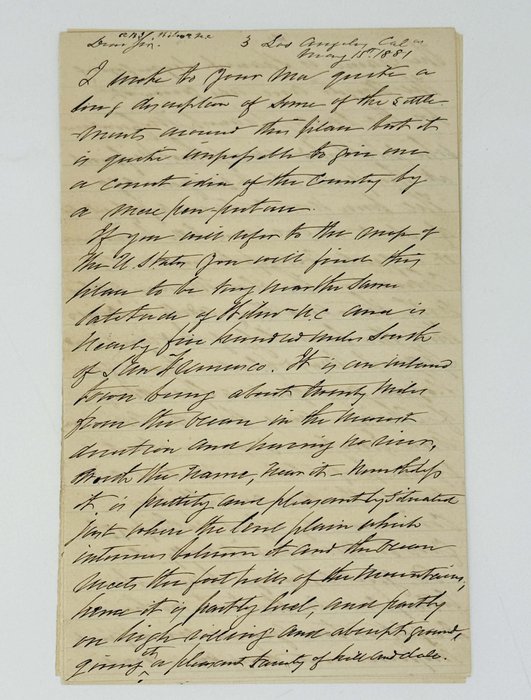 Dear Sir. 3 Los Angeles Cala
May 15th 1881
I wrote to your Ma quite a
long discription of some of the settle-
ments around this place but it
is quite impossible to give one
a correct idea of the Country by
a mere pen picture.
If you will refer to the map of
the U. States you will find this
place to be very near the same
latitude of N.C. and is
nearly five hundred miles south
of San Francisco. It is an inland
town being about twenty miles
from the ocean in the nearest
direction and having no river,
worth the name, near it - Nevertheless
it is prettily and pleasantly situated
just where the level plain which
intervenes between it and the ocean
meets the foot hills of the Mountains,
hence it is partly level, and partly
on high rolling and abrupt ground,
giving it a pleasant variety of hill and dale.